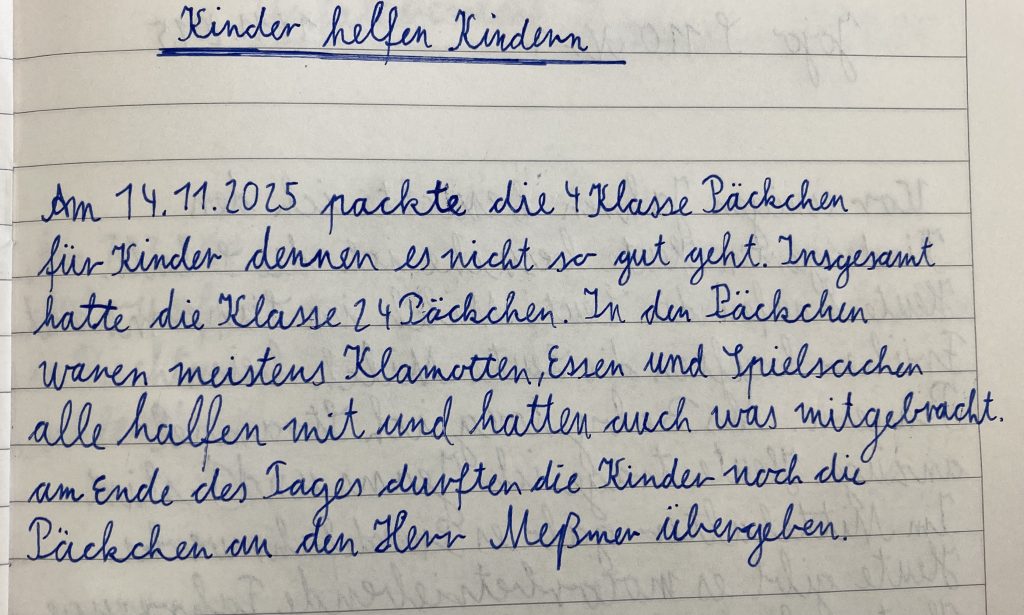 Kinder helfen Kindern
Am 14.11.2025 packte die 4 Klasse Päckchen
für Kinder dennen es nicht so gut geht. Insgesamt
hatte die Klasse 24 Päckchen. In den Päckchen
waren meistens Klamotten, Essen und Spielsachen
alle halfen mit und hatten auch was mitgebracht.
am Ende des Tages durften die Kinder noch die
Päckchen an den Herr Meßmer übergeben.